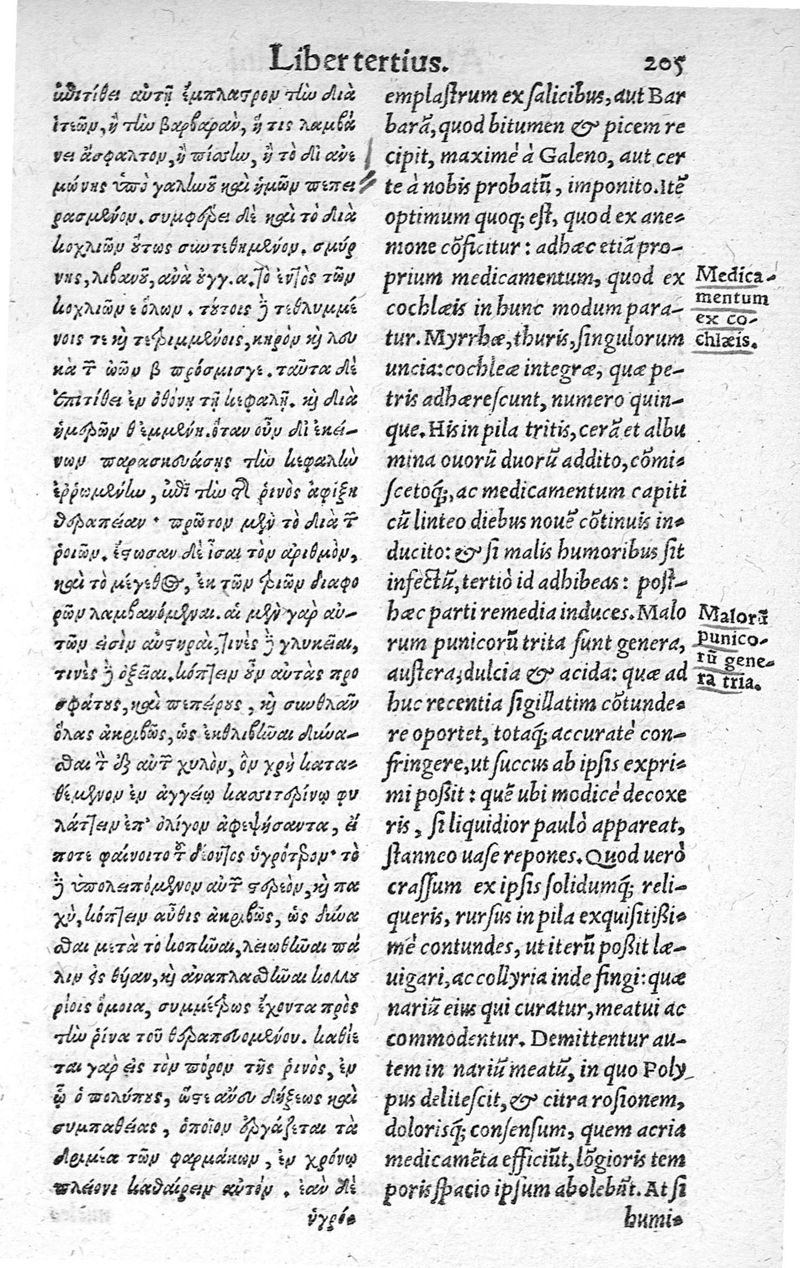 Liber tertius. 205
ἐπιτίθει αὐτῇ ἔμπλαστρον τὴν διὰ
ἰτεῶν, ἢ τὴν βαρβαρὰν, ἥ τις λαμβά
νει ἄσφαλτον, ἢ πίσσαν, ἢ τὸ δι ἀνε
μώνης ὑπὸ γαληνοῦ καὶ ἡμῶν πεπει
ρασμένον. συμφέρει δὲ καὶ τὸ διὰ
κοχλιῶν οὕτως συντεθημένον. σμύρ
νης, λιβάνου, ἀνὰ ουγγ. α. τὸ ἐντὸς τῶν
κοχλιῶν ε ὅλων. τούτοις ἢ τεθλυμμέ
νοις τε καὶ τετριμμένοις, κηρὸν καὶ λευ
κὰ τοῦ ὠῶν β πρόσμισγε. ταῦτα δὲ
ἐπιτίθει ἐν ὀθόνῃ τῇ κεφαλῇ. καὶ διὰ
ἡμερῶν θ ἐμμένῃ. ὅταν οὖν δι ἐκεί-
νων παρασκευάσῃς τὴν κεφαλὴν
ἐῤῥωμένην, ἐπὶ τὴν τῆς ῥινὸς ἀφίξῃ
θεραπείαν· πρῶτον μὲν τὸ διὰ τοῦ
ῥοιῶν. ἔστωσαν δὲ ἶσαι τὸν ἀριθμὸν,
καὶ τὸ μέγεθος, ἐκ τῶν τριῶν διαφο
ρῶν λαμβανόμεναι. αἱ μὲν γὰρ αὐ-
τῶν εἰσὶν αὐστηραὶ, τινὲς ἢ γλυκεῖαι,
τινὲς ἢ ὀξεῖαι. κόπτειν οὖν αὐτὰς προ
σφάτους, καὶ πεπείρους, καὶ συνθλᾶν
ὅλας ἀκριβῶς, ὡς ἐκθλιβῆναι δύνα-
σθαι τὸ ἐξ αὐτοῦ χυλὸν, ὃν χρὴ κατα-
θέμενον ἐν ἀγγείῳ κασσιτερίνῳ φυ
λάττειν ἐπ' ὀλίγον ἀφεψήσαντα, εἴ
ποτε φαίνοιτο τοῦ δέοντος ὑγρότερον· τὸ
ἢ ὑπολειπόμενον αὐτοῦ στερεὸν, καὶ πα
χὺ, κόπτειν αὖθις ἀκριβῶς, ὡς δύνα
σθαι μετὰ τὸ κοπῆναι, λειωθῆναι πά
λιν εἰς θυίαν, καὶ ἀναπλασθῆναι κολλυ
ρίοις ὅμοια, συμμέτρως ἔχοντα πρὸς
τὴν ῥίνα τοῦ θεραπευομένου. καθίε
ται γὰρ εἰς τὸν πόρον τῆς ῥινὸς, ἐν
ᾧ ὁ πολύπους, ὥστε ἄνευ δήξεως καὶ
συμπαθείας, ὁποῖον ἐργάζεται τὰ
δριμία τῶν φαρμάκων, ἐν χρόνῳ
πλείονι καθαίρειν αὐτόν. ἐὰν δὲ
ὑγρό-
emplastrum ex salicibus, aut Bar
barã, quod bitumen & picem re
cipit, maximè à Galeno, aut cer
te à nobis probatũ, imponito. Itẽ
optimum quoq; est, quod ex ane-
mone cõficitur: adhæc etiã pro-
prium medicamentum, quod ex
cochlæis in hunc modum para-
tur. Myrrhæ, thuris, singulorum
uncia: cochleæ integræ, quæ pe-
tris adhærescunt, numero quin-
que. His in pila tritis, cerã et albu
mina ouorũ duorũ addito, cõmi-
scetoq;, ac medicamentum capiti
cũ linteo diebus nouẽ cõtinuis in-
ducito: & si malis humoribus sit
infectũ, tertiò id adhibeas: post-
hæc parti remedia induces. Malo
rum punicorũ trita sunt genera,
austera, dulcia & acida: quæ ad
huc recentia sigillatim cõtunde-
re oportet, totaq; accuratè con-
fringere, ut succus ab ipsis expri-
mi poßit: quẽ ubi modicè decoxe
ris, si liquidior paulò appareat,
stanneo uase repones. Quod uerò
crassum ex ipsis solidumq; reli-
queris, rursus in pila exquisitißi-
mè contundes, ut iterũ poßit læ-
uigari, ac collyria inde fingi: quæ
nariũ eius qui curatur, meatui ac
commodentur. Demittentur au-
tem in nariũ meatũ, in quo Poly
pus delitescit, & citra rosionem,
dolorisq; consensum, quem acria
medicamẽta efficiũt, lõgioris tem
poris spacio ipsum abolebũt. At si
humi-
Medica-
mentum
ex co-
chlæis.
Malorũ
punico-
rũ gene-
ra tria.